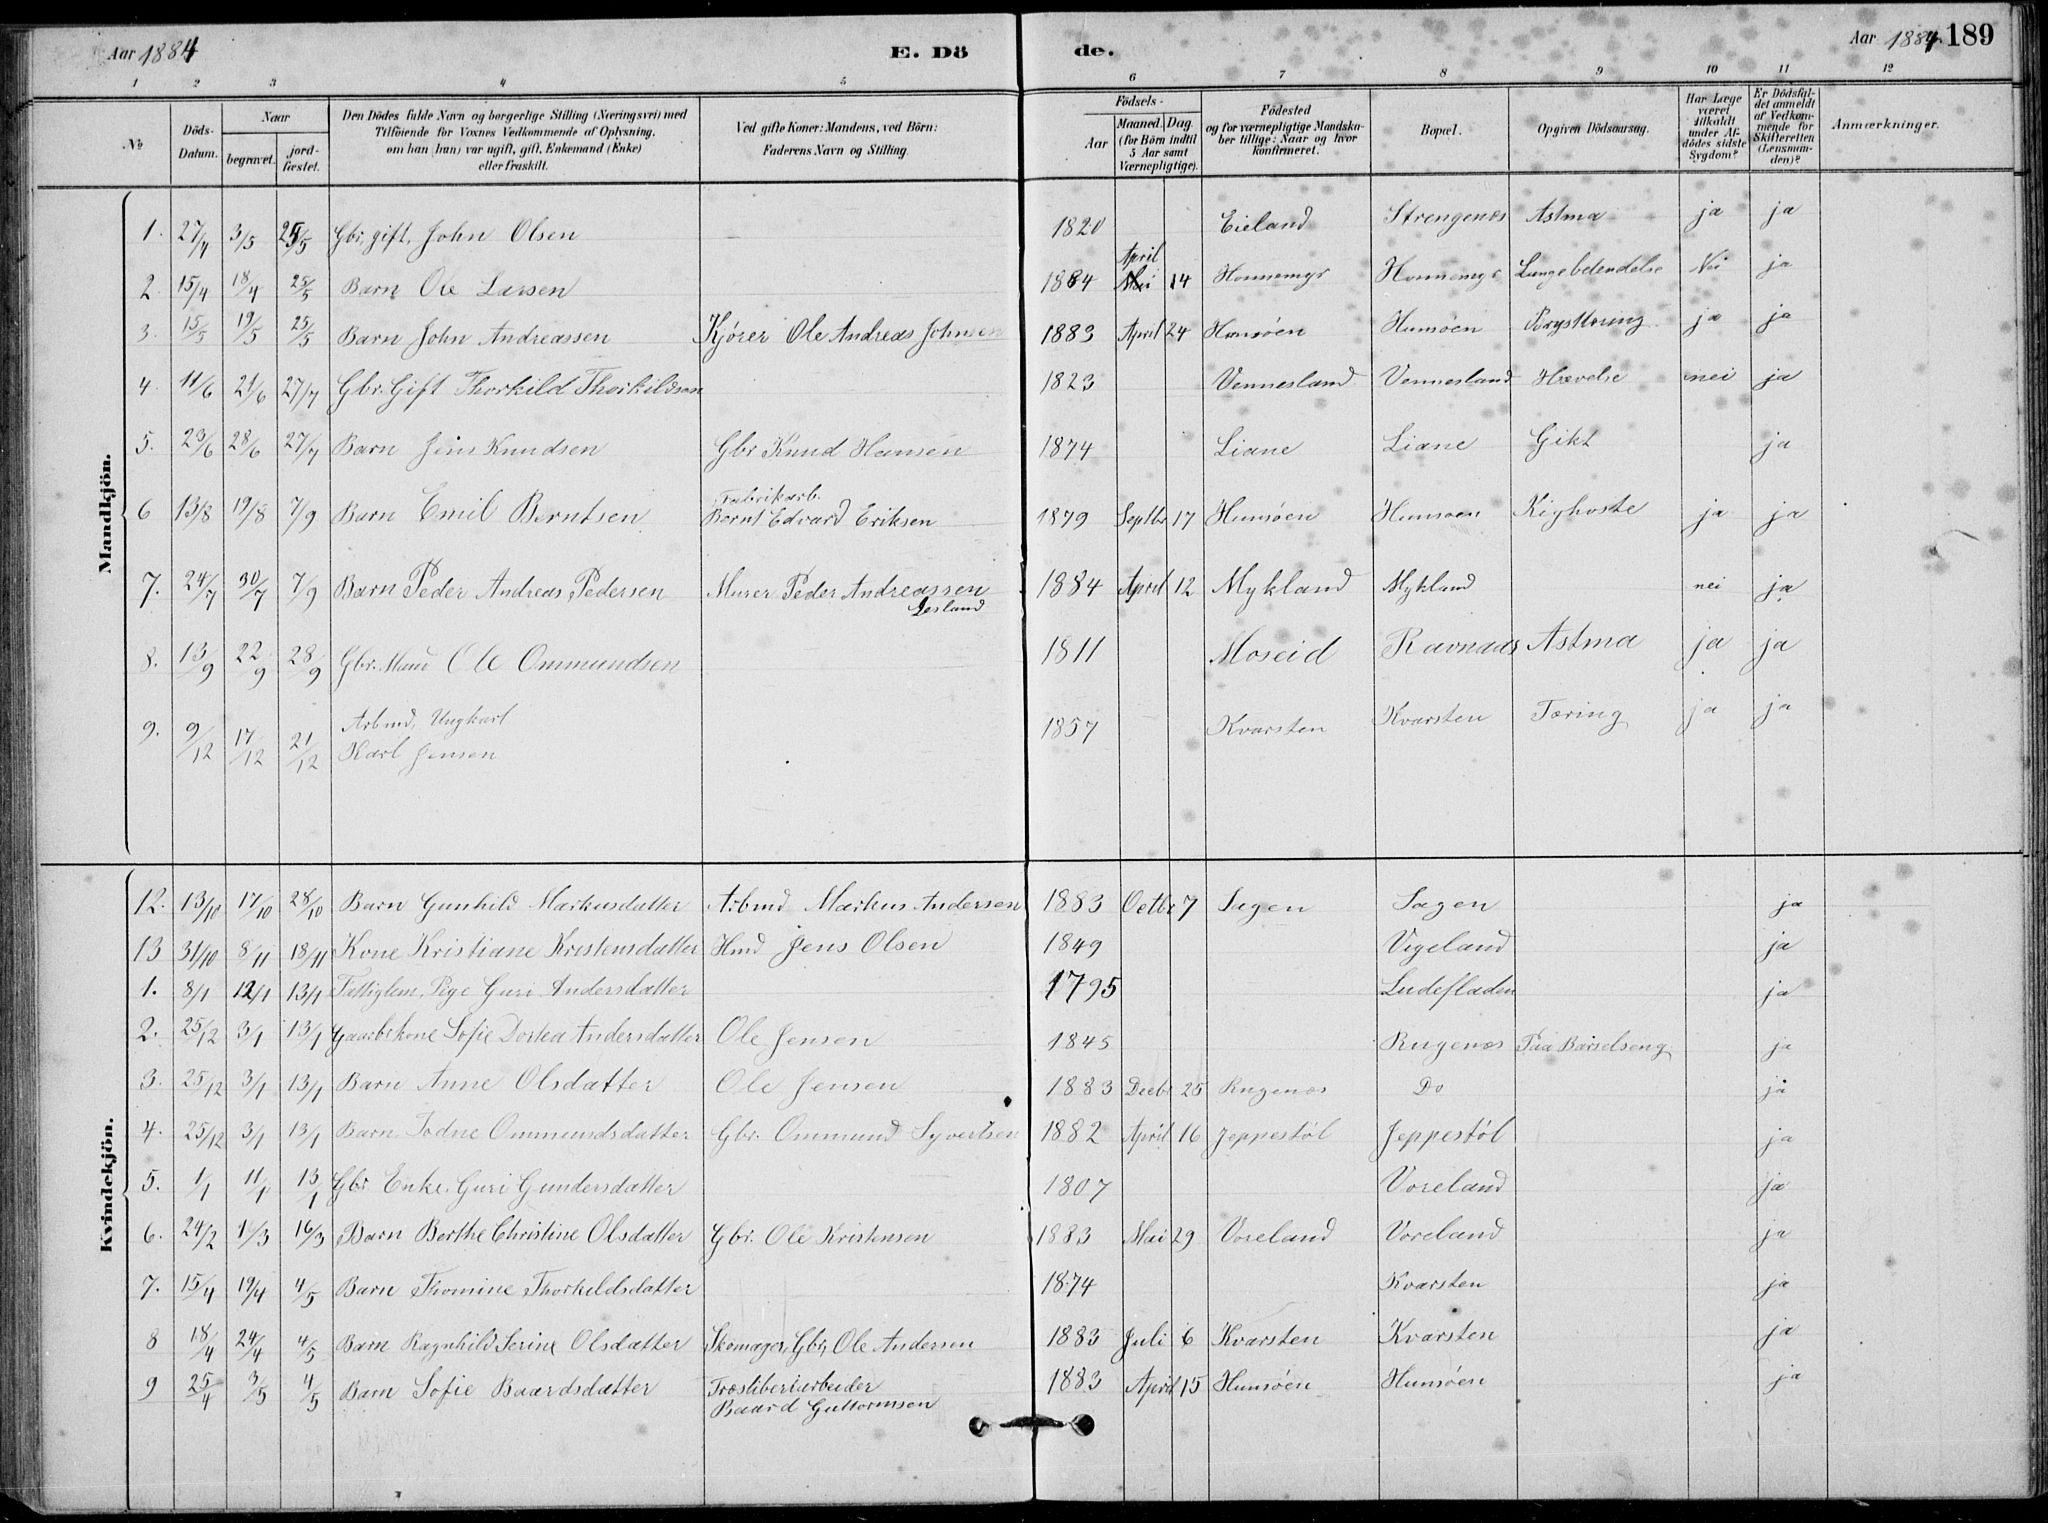 Aar 1884
E. Dö
de.
Aar 1884.
189
1 2 3 4 5 6 7 8 9 10 11 12
№
Döds-Datum.
Naar
begravet.
jordfæstet.
Den Dödes fulde Navn og borgerlige Stilling (Næringsvei) med
Tilföiende for Voxnes Vedkommende af Oplysning,
om han (hun) var ugift, gift, Enkemand (Enke)
eller fraskilt.
Ved gifte Koner: Mandens, ved Börn:
Faderens Navn og Stilling.
Födsels-
Aar
Maaned. Dag
(for Börn indtil
5 Aar samt
Værnepligtige).
Födested
og for værnepligtige Mandskaber tillige: Naar og hvor
konfirmeret.
Bopæl.
Opgiven Dödsaarsag.
Har Læge
været
tilkaldt
under Afdödes sidste
Sygdom?
Er Dödsfaldet anmeldt
af Vedkommende for
Skifteretten
(Lensmanden)?
Anmærkninger.
Mandkjön.
1. 27/4 3/5 25/5 Gbr. gift. John Olsen 1820 Eieland Strengenæs Astma ja ja
2. 15/4 18/4 25/5 Barn Ole Larsen 1884 April 14 Honnemyr Honnemyr Lungebetendelse Nei ja
3. 15/5 19/5 25/5 Barn John Andreassen Kjører Ole Andreas Johnsen 1883 April 24 Hunsöen Hunsöen Brysttæring ja ja
4. 11/6 21/6 27/7 Gbr. Gift Thorkild Thorkildsen 1823 Vennesland Vennesland Hævelse nei ja
5. 23/6 28/6 27/7 Barn Jens Knudsen Gbr Knud Hansen 1874 Liane Liane Gikt ja
6 13/8 19/8 7/9 Barn Emil Berntsen Fabrikarb. Bernt Edvard Eriksen 1879 Septbr 17 Hunsöen Hunsöen Kighoste ja ja
7. 24/7 30/7 7/9 Barn Peder Andreas Pedersen Murer Peder Andreassen 1884 April 12 Mykland Mykland nei ja
8. 13/9 22/9 28/9 Gbr. Mand Ole Ommundsen 1811 Moseid Ravnaas Astma ja ja
9. 9/12 17/12 21/12 Arbmd, Ungkarl
Karl Jensen 1857 Kvarsten Kvarsten Tæring ja ja
Kvindekjön.
12. 13/10 17/10 28/10 Barn Gunhild Markusdatter Arbmd Markus Andersen 1883 Octbr 7 Sagen Sagen ja
13 31/10 8/11 18/11 Kone Kristiane Kristensdatter Hmd Jens Olsen 1849 Vigeland ja
1. 8/1 12/1 13/1 Fattiglem. Pige Guri Andersdatter 1795 Ludefladen ja
2. 25/12 3/1 13/1 Gaardbrkone Sofie Dortea Andersdatter Ole Jensen 1845 Rugenæs Paa Barselseng ja
3. 25/12 3/1 13/1 Barn Anne Olsdatter Ole Jensen 1883 Decbr 25 Rugenæs Do ja
4. 25/12 3/1 13/1 Barn Todne Ommundsdatter Gbr. Ommund Syvertsen 1882 April 16 Jeppestöl Jeppestöl ja
5. 1/1 11/1 13/1 Gbr Enke. Guri Gundersdatter 1807 Voreland ja
6. 24/2 1/3 16/3 Barn Berthe Christine Olsdatter Gbr. Ole Kristensen 1883 Mai 29 Voreland Voreland ja
7. 15/4 19/4 4/5 Barn Thomine Thorkildsdatter 1874 Kvarsten ja
8 18/4 24/4 4/5 Barn Ragnhild Serine Olsdatter Skomager, Gbr, Ole Andersen 1883 Juli 6 Kvarsten Kvarsten ja
9 25/4 3/5 4/5 Barn Sofie Baardsdatter Træsliberiarbeider
Baard Guttormsen 1883 April 15 Hunsöen Hunsöen ja